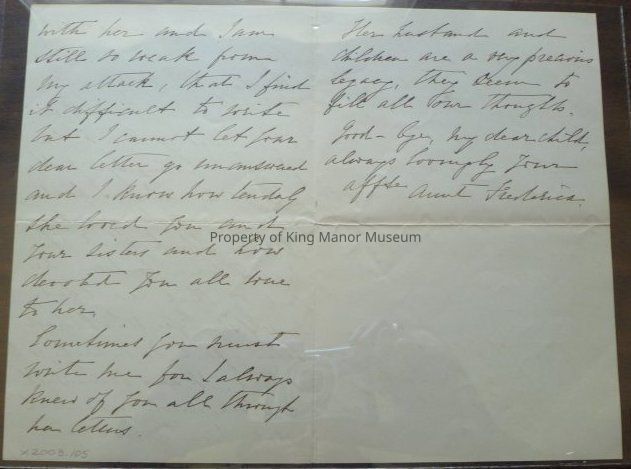 with her and I am
still so weak from
my attack, that I find
it difficult to write
but I cannot let your
dear letter go unanswered
and I know how tenderly
she loved you and
your sisters and how
devoted you all were
to her.
Sometimes you must
write me for I always
knew of you all through
her letters.
x2009.105
Her husband and
children are a very precious
legacy, they seem to
fill all our thoughts.
Good-bye, my dear child,
always lovingly your
affte Aunt Frederica.
Property of King Manor Museum